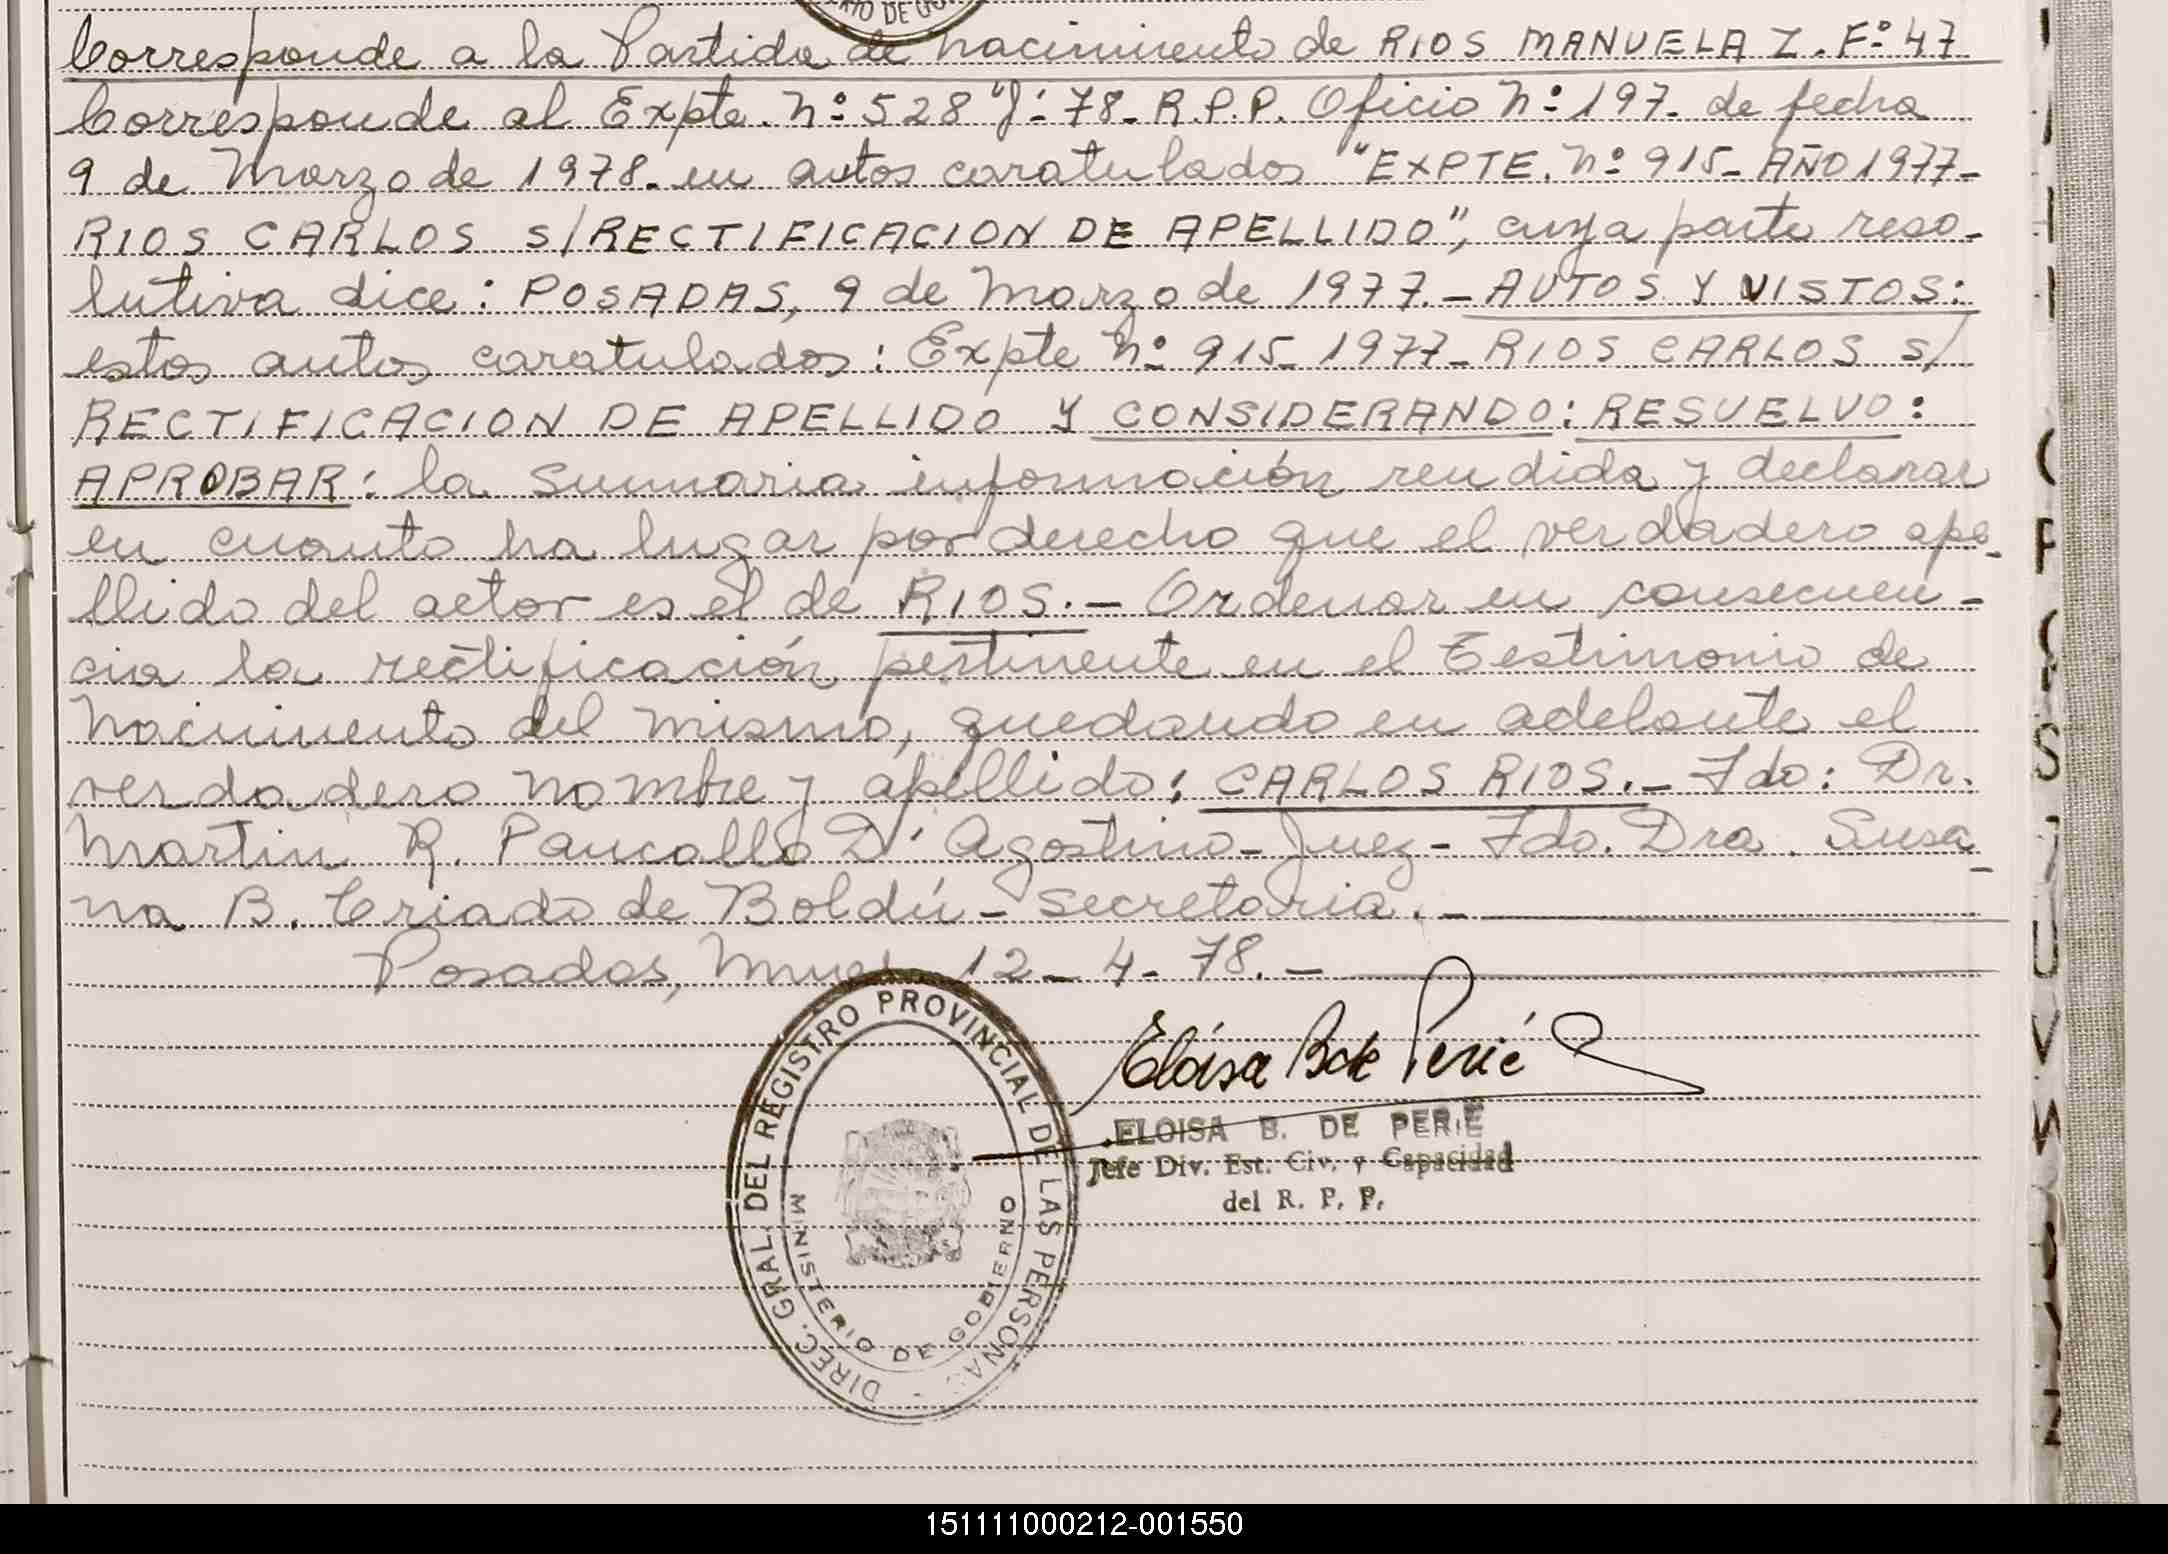 RIO DE GO
Corresponde a la Partida de nacimiento de RIOS MANUELA Z. Fº 47
Corresponde al Expte. Nº 528 "J"- 78- R.P.P. Oficio Nº 197- de fecha
9 de Marzo de 1978- en autos caratulados "EXPTE. Nº 915- AÑO 1977-
RIOS CARLOS s/RECTIFICACION DE APELLIDO", cuya parte reso-
lutiva dice: POSADAS, 9 de Marzo de 1977.- AUTOS Y VISTOS:
estos autos caratulados: Expte Nº 915- 1977- RIOS CARLOS s/
RECTIFICACION DE APELLIDO Y CONSIDERANDO: RESUELVO:
APROBAR: la Sumaria información rendida y declarar
en cuanto ha lugar por derecho que el verdadero ape-
llido del actor es el de RIOS.- Ordenar en consecuen-
cia la rectificación pertinente en el Testimonio de
Nacimiento del mismo, quedando en adelante el
verdadero nombre y apellido: CARLOS RIOS.- Fdo: Dr.
Martin R. Pancallo D'Agostino- Juez- Fdo. Dra. Susa-
na B. Criado de Boldú- Secretaria.-
Posadas, 12- 4- 78.-
DIREC. GRAL. DEL REGISTRO PROVINCIAL DE LAS PERSONAS
MINISTERIO DE GOBIERNO
Eloisa B de Perié
ELOISA B. DE PERIE
Jefe Div. Est. Civ. y Capacidad
del R. P. P.
S
T
U
V
W
151111000212-001550